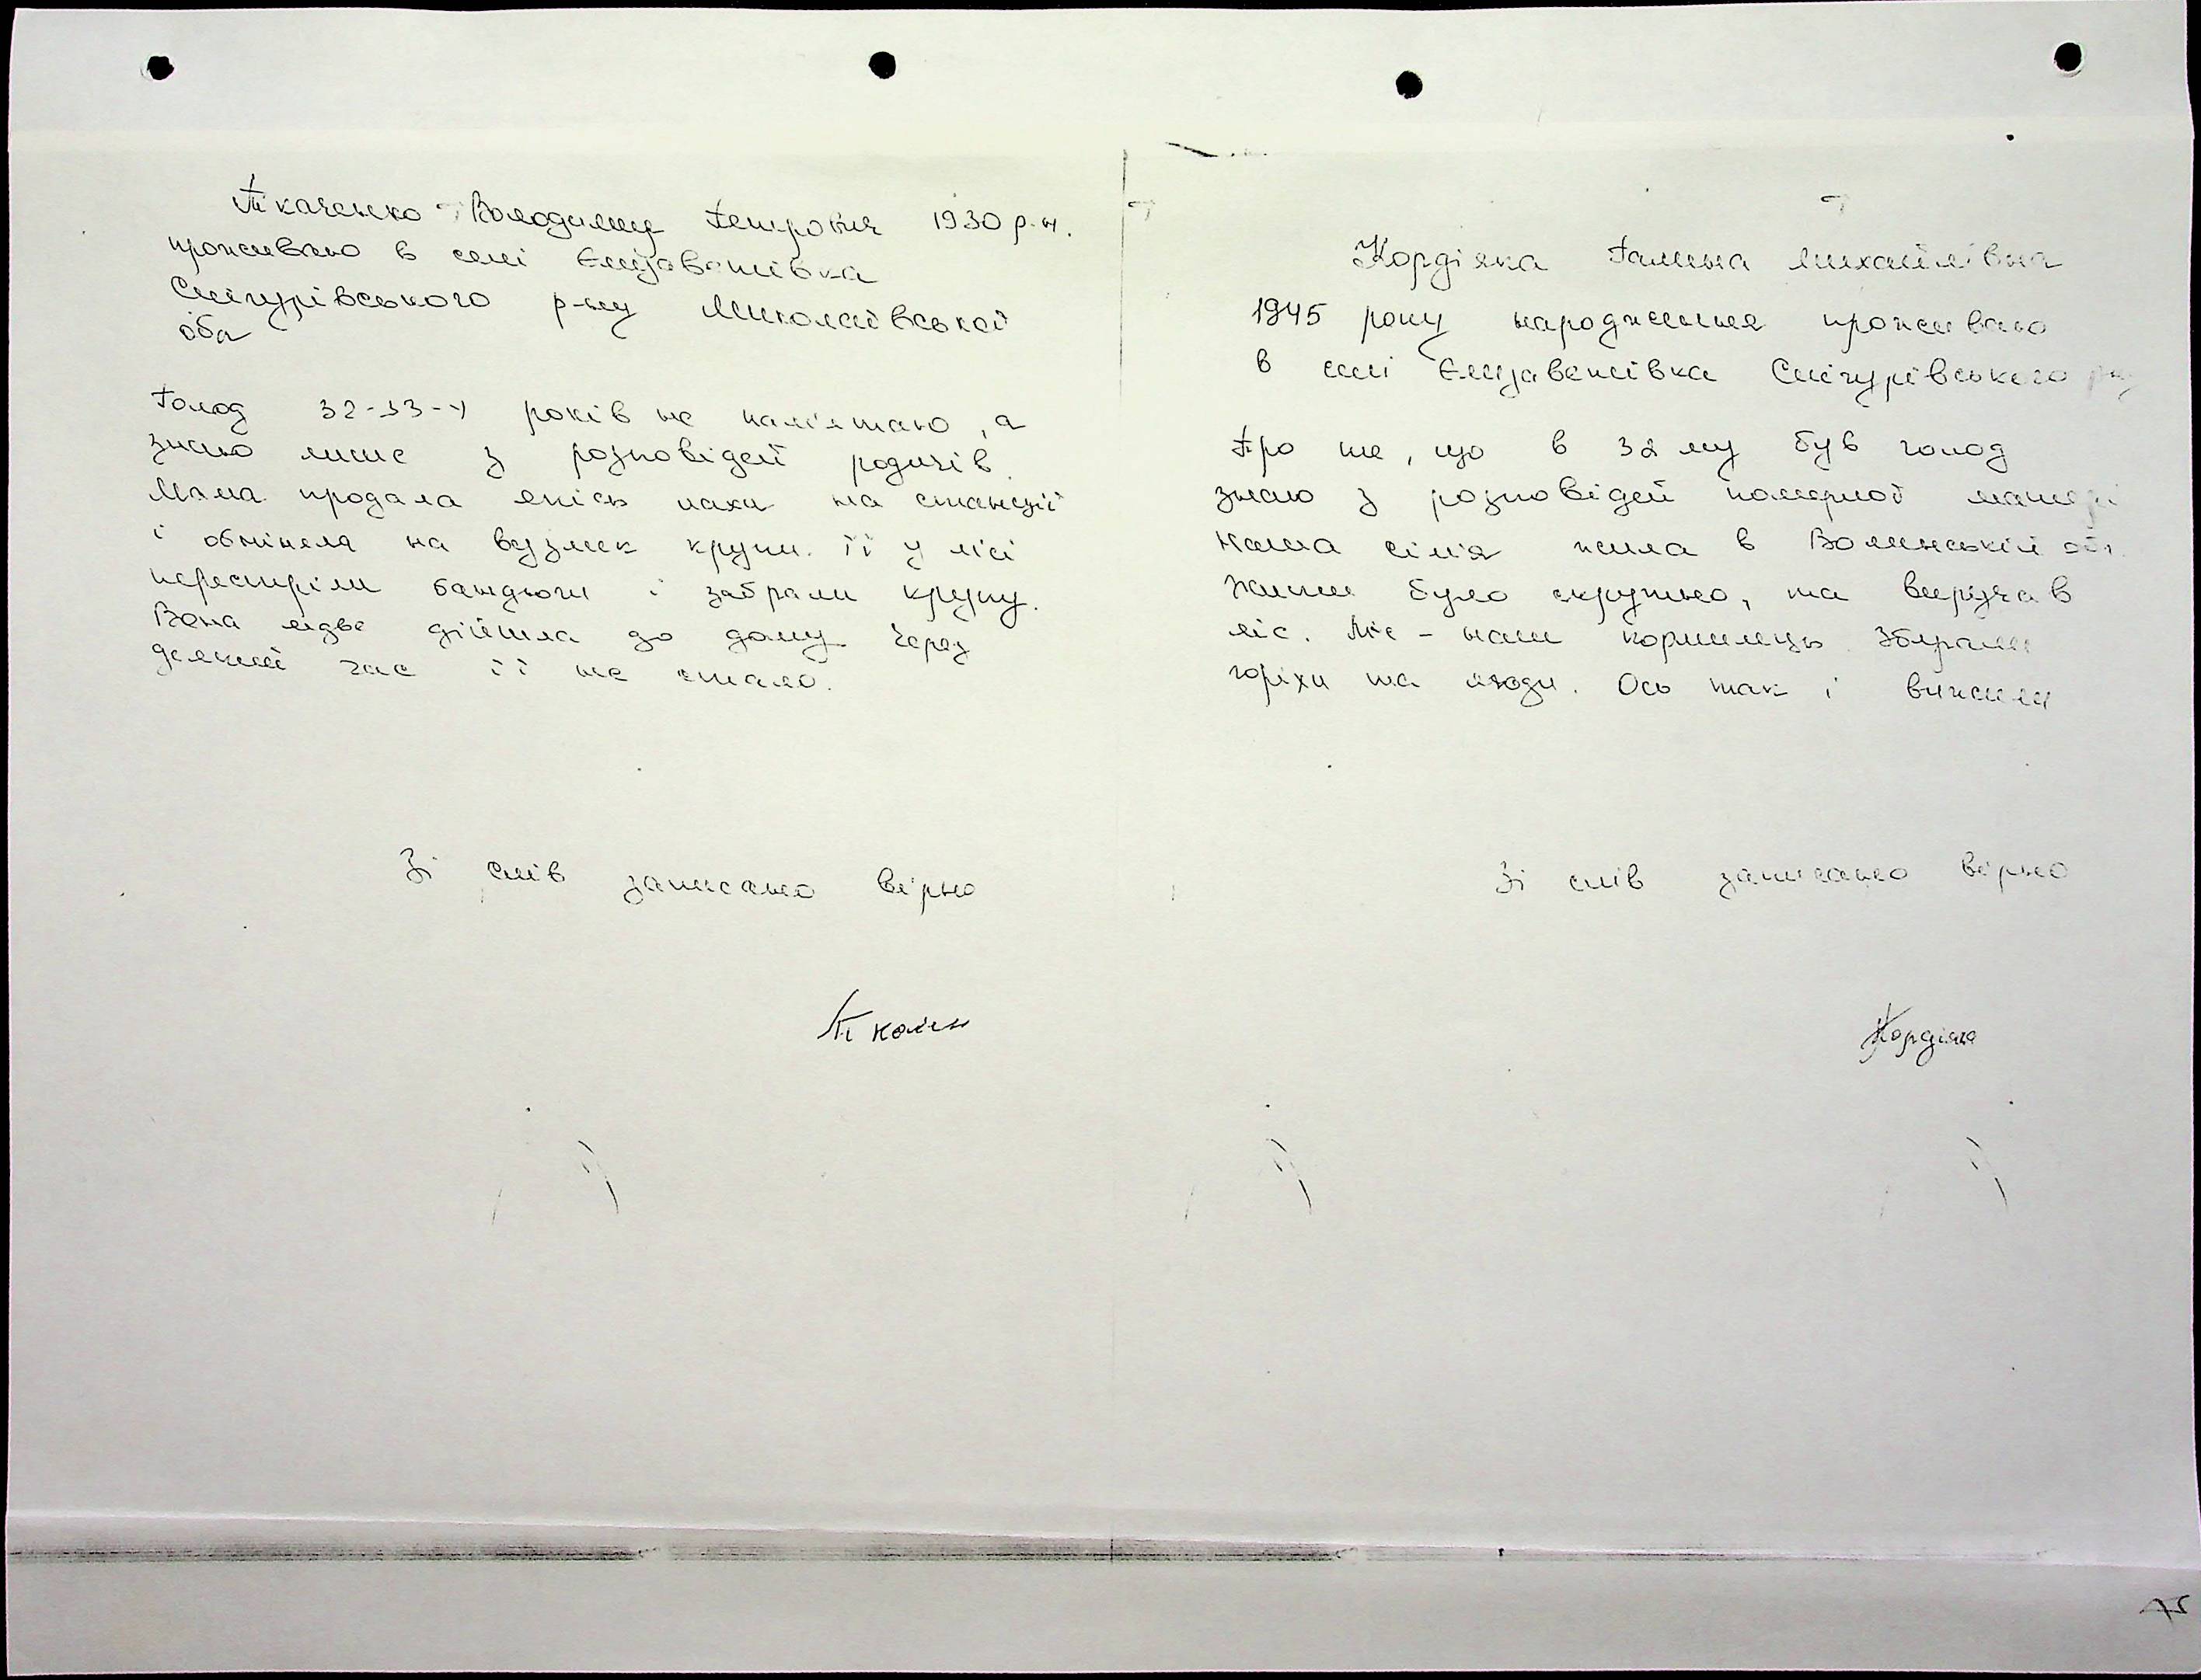 Ткаченко Володимир Петрович 1930 р.н.
проживаю в селі Єлизаветівка
Снігурівського р-ну Миколаївської
обл
Голод 32-33-х років не пам'ятаю, а
знаю лише з розповідей родичів.
Мама продала якісь лахи на станції
і обміняла на вузлик крупи. Її у лісі
перестріли бандюги і забрали крупу.
Вона ледве дійшла до дому. Через
деякий час її не стало.
Зі слів записано вірно
Кордіяка Галина Михайлівна
1945 року народження проживаю
в селі Єлизаветівка Снігурівського р-ну
Про те, що в 32 му був голод
знаю з розповідей померлої матері
Наша сім'я жила в Волинській обл.
Жити було скрутно, та виручав
ліс. Ліс - наш кормилець. Збирали
горіхи та ягоди. Ось так і вижили
Зі слів записано вірно
Кордіяка